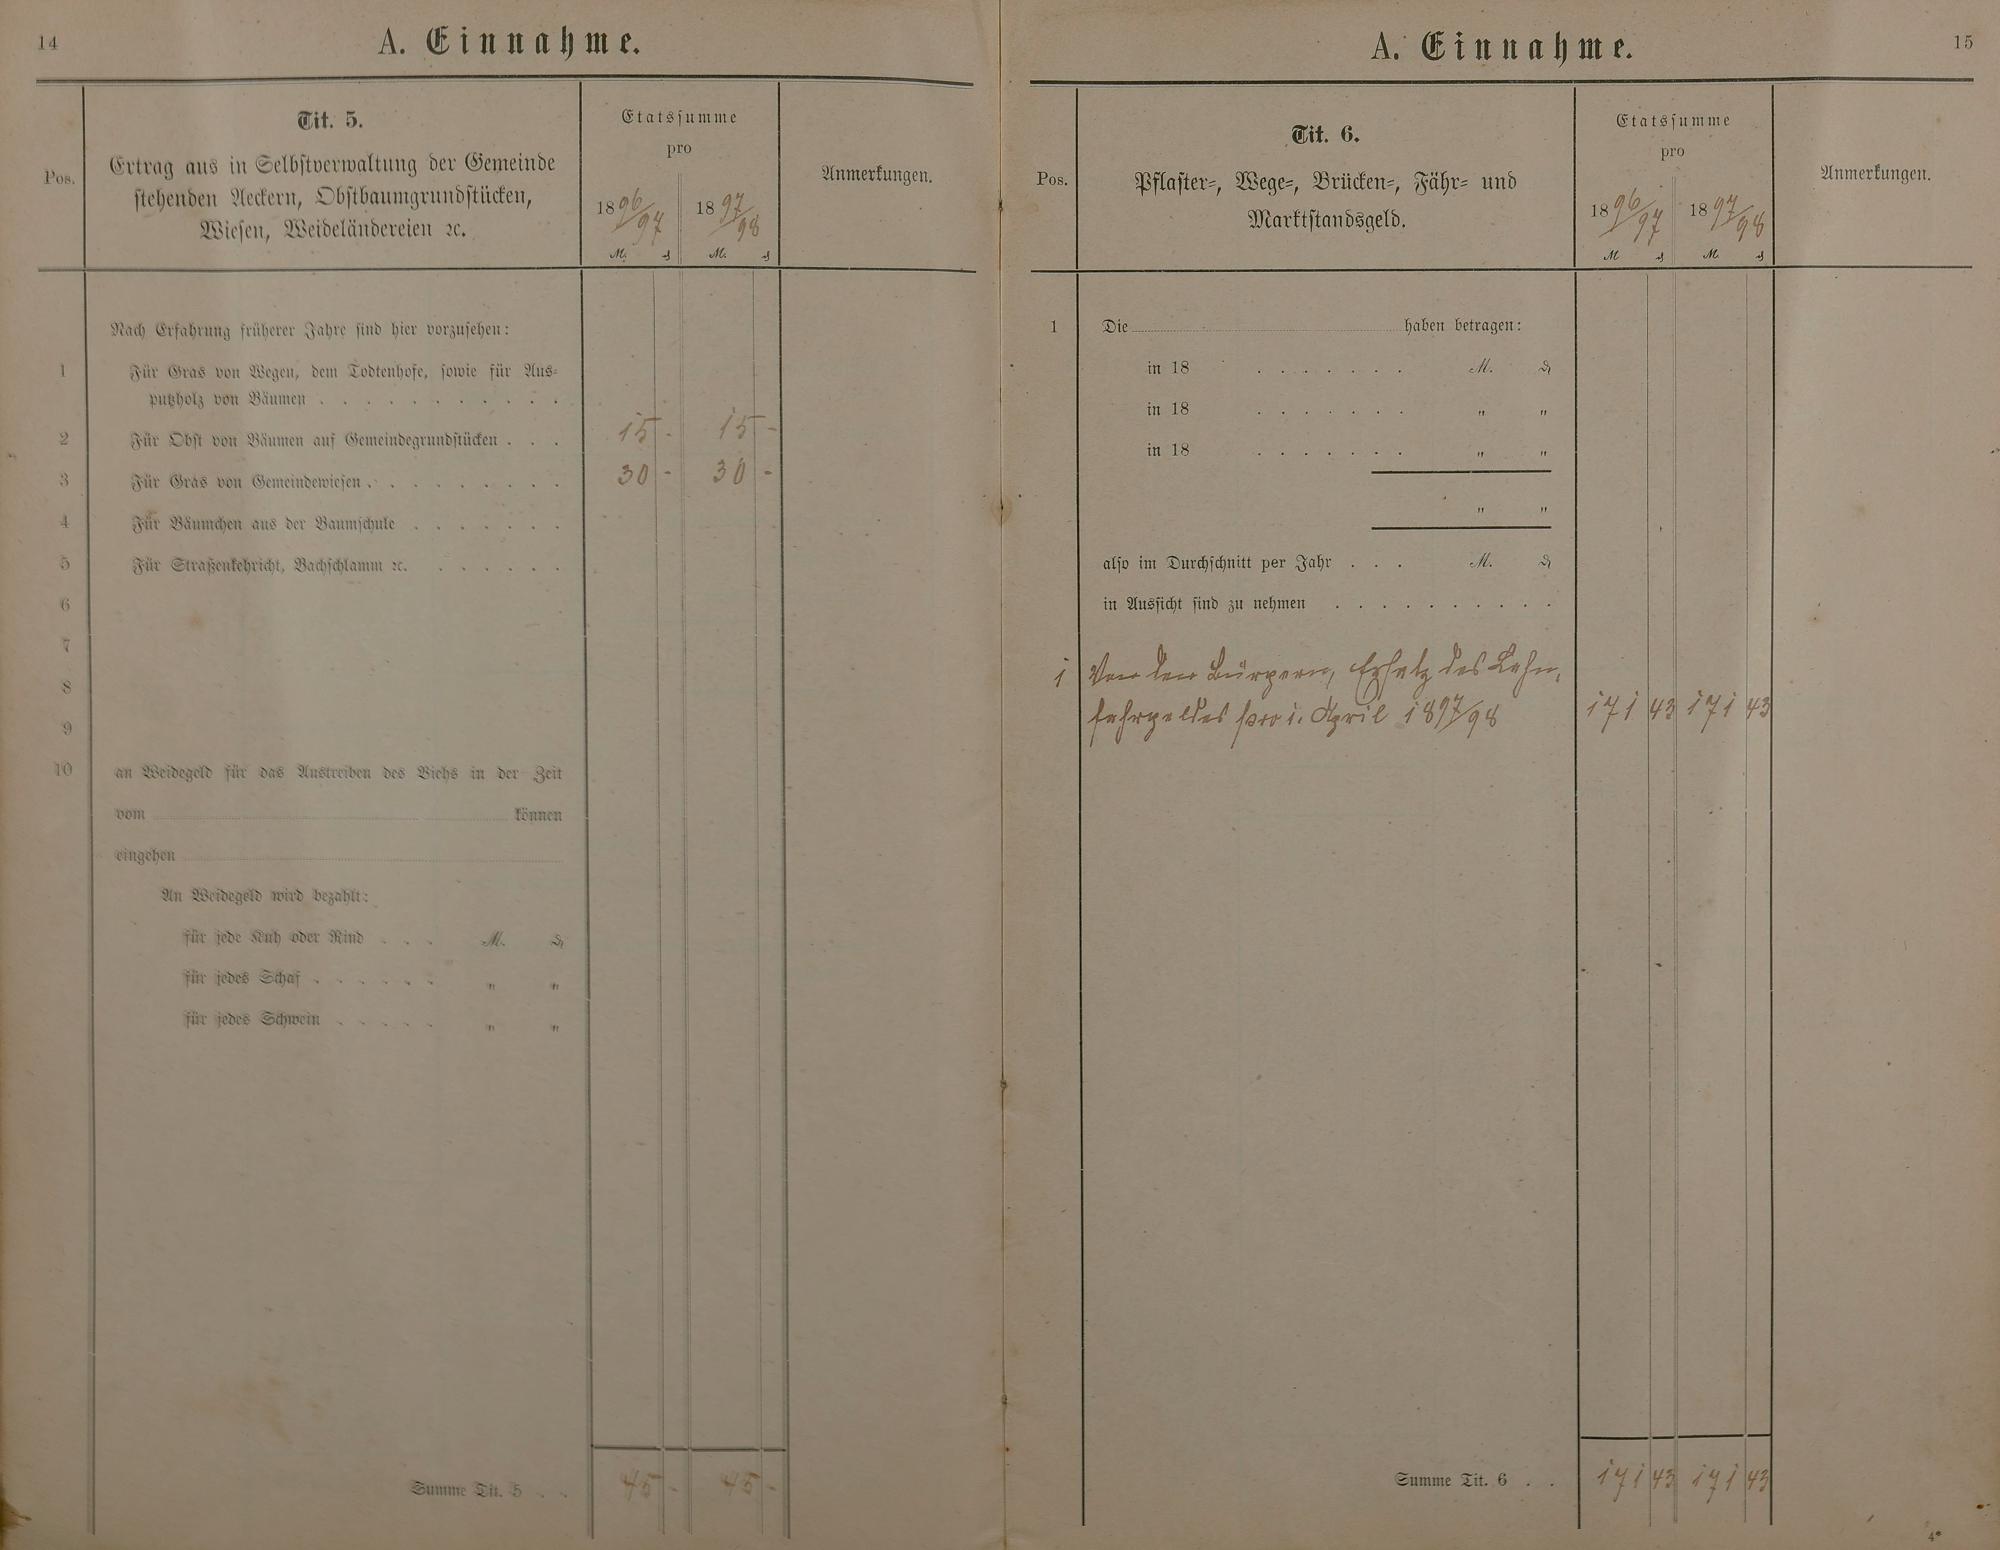 14
A. Einnahme.
Pos.
Tit. 5.
Ertrag aus in Selbstverwaltung der Gemeinde
stehenden Aeckern, Obstbaumgrundstücken,
Wiesen, Weideländereien ꝛc.
Etatssumme
pro
1896/97 1897/98
M. ₰ M. ₰
Anmerkungen.
Nach Erfahrung früherer Jahre sind hier vorzusehen:
1 Für Gras von Wegen, dem Todtenhofe, sowie für Aus-
putzholz von Bäumen . . . . . . . . . . .
2 Für Obst von Bäumen auf Gemeindegrundstücken . . . 15 - 15 -
3 Für Gras von Gemeindewiesen . . . . . . . . . 30 - 30 -
4 Für Bäumchen aus der Baumschule . . . . . . .
5 Für Straßenkehricht, Bachschlamm ꝛc. . . . . . .
6
7
8
9
10 an Weidegeld für das Austreiben des Viehs in der Zeit
vom können
eingehen
An Weidegeld wird bezahlt:
für jede Kuh oder Rind . . . M. ₰
für jedes Schaf . . . . . . " "
für jedes Schwein . . . . . " "
Summe Tit. 5 . . 45 - 45 -
A. Einnahme.
15
Pos.
Tit. 6.
Pflaster-, Wege-, Brücken-, Fähr- und
Marktstandsgeld.
Etatssumme
pro
1896/97 1897/98
M ₰ M. ₰
Anmerkungen.
1 Die haben betragen:
in 18 . . . . . . . M. ₰
in 18 . . . . . . . " "
in 18 . . . . . . . " "
" "
also im Durchschnitt per Jahr . . . M. ₰
in Aussicht sind zu nehmen . . . . . . . . . .
1 Von den Bürgern, Ersatz des Lahn-
fahrgeldes pro 1. April 1897/98 171 43 171 43
Summe Tit. 6 . . 171 43 171 43
4*